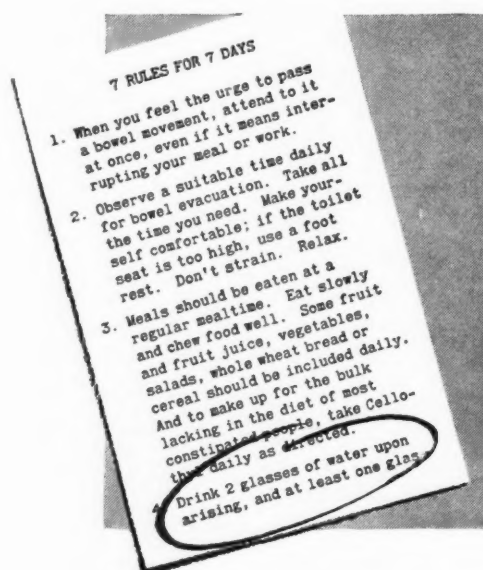 7 RULES FOR 7 DAYS
1. When you feel the urge to pass
a bowel movement, attend to it
at once, even if it means inter-
rupting your meal or work.
2. Observe a suitable time daily
for bowel evacuation. Take all
the time you need. Make your-
self comfortable; if the toilet
seat is too high, use a foot
rest. Don't strain. Relax.
3. Meals should be eaten at a
regular mealtime. Eat slowly
and chew food well. Some fruit
and fruit juice, vegetables,
salads, whole wheat bread or
cereal should be included daily.
And to make up for the bulk
lacking in the diet of most
constipated people, take Cello-
thyl daily as directed.
4. Drink 2 glasses of water upon
arising, and at least one glas